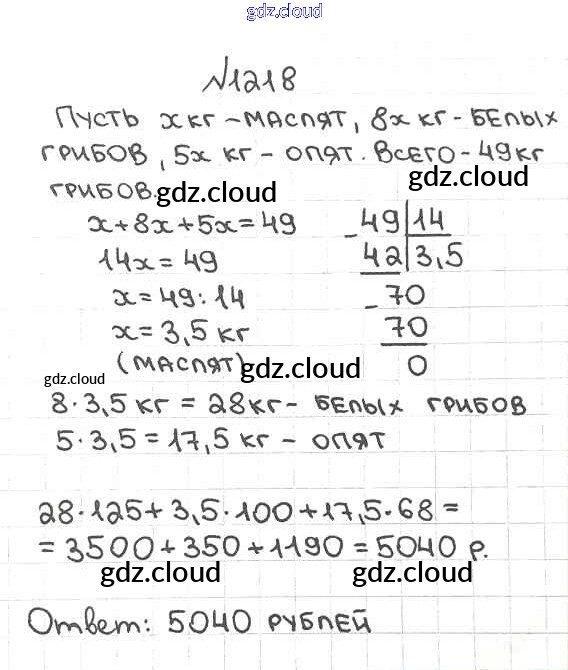 gdz.cloud
№1218
Пусть х кг – маслят, 8х кг – белых
грибов, 5х кг – опят. Всего – 49 кг
грибов. gdz.cloud
х+8х+5х=49
14х = 49
х = 49 : 14
х = 3,5 кг
(маслят) gdz.cloud
- 49 14
42 3,5
- 70
70
0
gdz.cloud
8·3,5 кг = 28 кг – белых грибов
5·3,5 = 17,5 кг – опят
28·125+3,5·100+17,5·68 =
= 3500+350+1190 = 5040 р.
gdz.cloud gdz.cloud
Ответ: 5040 рублей